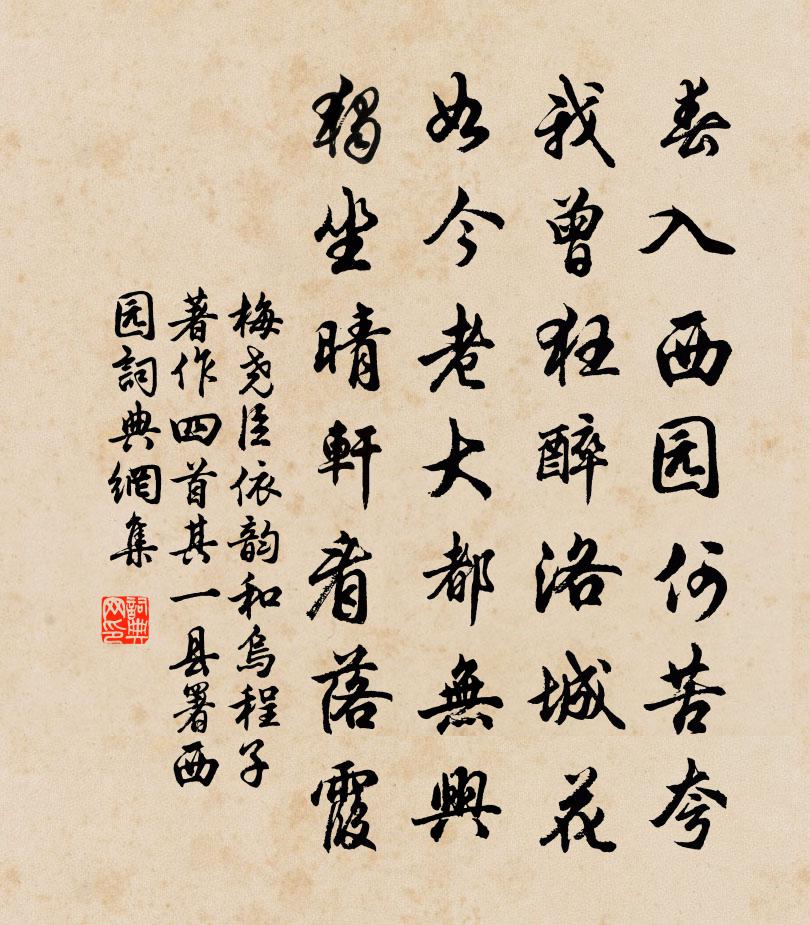 春入西园何苦夸
我曾狂醉洛城花
如今老大都無興
獨坐晴軒看落霞
梅尧臣依韵和烏程子
著作四首其一县署西
园詞典網集
詞典网印